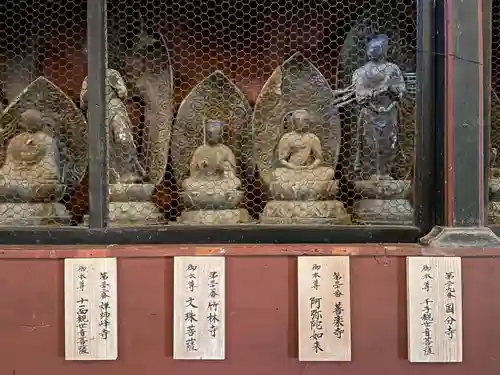 第二九番 国分寺
御本尊 千手観世音菩薩
第三十番 善楽寺
御本尊 阿弥陀如来
第三一番 竹林寺
御本尊 文殊菩薩
第三二番 禅師峰寺
御本尊 十一面観世音菩薩